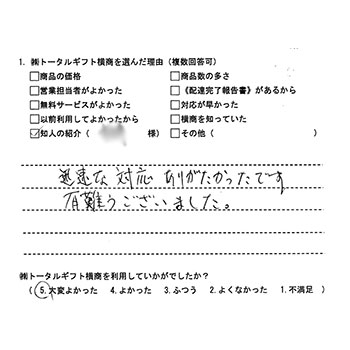 1. ㈱トータルギフト横商を選んだ理由（複数回答可）
□商品の価格 □商品数の多さ
□営業担当者がよかった □《配達完了報告書》があるから
□無料サービスがよかった □対応が早かった
□以前利用してよかったから □横商を知っていた
☑知人の紹介（ 様） □その他（ ）
迅速な対応ありがたかったです
有難うございました。
㈱トータルギフト横商を利用していかがでしたか？
（ 5.大変よかった 4.よかった 3.ふつう 2.よくなかった 1.不満足 ）